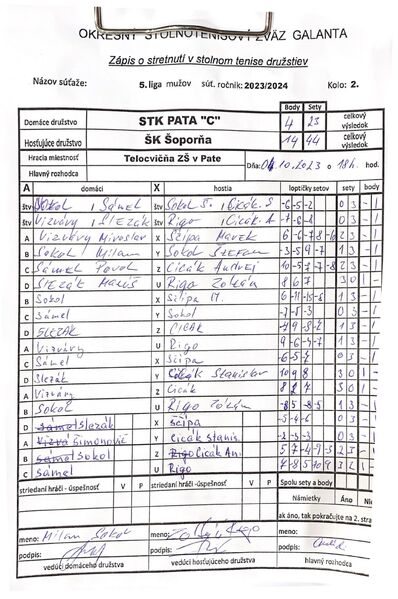 OKRESNÝ STOLNOTENISOVÝ ZVÄZ GALANTA
Zápis o stretnutí v stolnom tenise družstiev
Názov súťaže: 5. liga mužov súť. ročník: 2023/2024 Kolo: 2.
Body Sety
Domáce družstvo STK PATA "C" 4 23 celkový výsledok
Hosťujúce družstvo ŠK Šoporňa 14 44 celkový výsledok
Hracia miestnosť Telocvičňa ZŠ v Pate Dňa: 04.10.2023 o 18 h. hod.
Hlavný rozhodca
A domáci X hostia loptičky setov sety body
štv Sokol , Sámel štv Sokol Š. , Cicák. S -6 -5 -2 0 3 - 1
štv Vizváry , SLEZÁK štv Rigo , Cicák. A -7 -6 -8 0 3 - 1
A Vizváry Miroslav X Ščipa Marek 2 3 - 1
B Sokol Milan Y Sokol STEFAN 1 3 - 1
C Sámel Pavol Z Cicák Andrej 2 3 - 1
D SLEZÁK U Rigo Zoltán 8 6 7 3 0 1 -
B Sokol X Ščipa M. 1 3 - 1
C Sámel Y Sokol 0 3 - 1
D SLEZÁK Z CICAK 1 3 - 1
A Vizváry U Rigo 1 3 - 1
C Sámel X Ščipa -6 -5 0 3 - 1
D Slezák Y Cicák Stanislav 10 9 8 3 0 1 -
A Vizváry Z Cicák 3 0 1 -
B Sokol U Rigo Zoltán -8 5 -8 -5 1 3 - 1
D Sámel Slezák X Ščipa -5 -4 -6 0 3 - 1
A Vizvá Šimonovič Y Cicák Stanis. 0 3 - 1
B Sámel Sokol Z Rigo Cicák An. 5 7 -4 -9 2 3 - 1
C Sámel U Rigo 7 -8 5 10 3 1 -
striedaní hráči - úspešnosť V P striedaní hráči - úspešnosť V P Spolu sety a body
Námietky Áno
ak áno, tak pokračujte na 2. stra
meno: Milan Sokol meno: Rigo
podpis: podpis:
vedúci domáceho družstva vedúci hosťujúceho družstva hlavný rozhodca